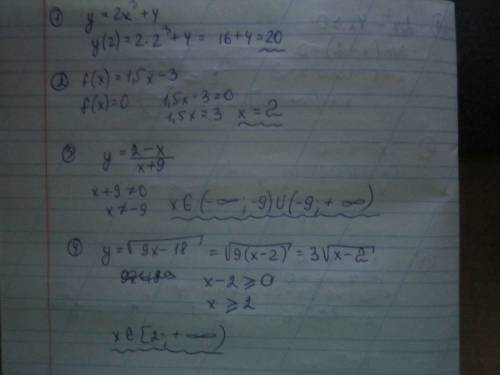 ① y = 2x³+4
y(2) = 2·2³+4 = 16+4=20
② f(x) = 1,5x-3
f(x)=0 1,5x-3=0
1,5x=3 x=2
③ y = \frac{2-x}{x+9}
x+9≠0
x≠-9 x∈(-∞;-9)∪(-9;+∞)
④ y=√(9x-18) = √(9(x-2)) = 3√(x-2)
x-2≥0
x≥2
x∈[2;+∞)